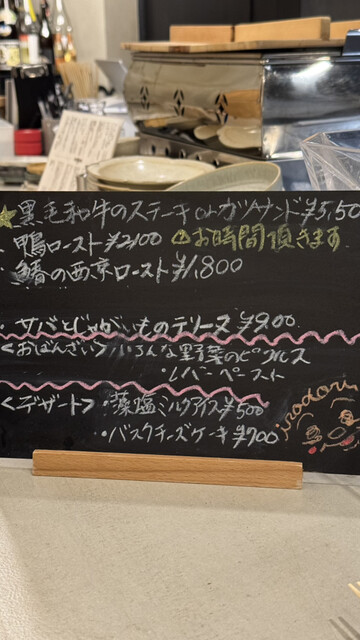 黒毛和牛のステーキorカツサンド ¥5,50
・鴨ロースト ¥2100 ⚠お時間頂きます
・鰆の西京ロースト ¥1,800
・サバとじゃがいものテリーヌ ¥900
<おばんざい>・いろんな野菜のピクルス
・レバーペースト
<デザート>・藻塩ミルクアイス ¥500
・バスクチーズケーキ ¥700
irodori